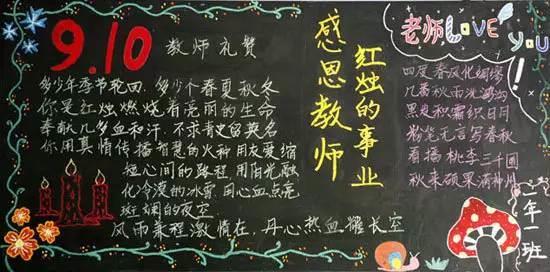 9.10 教师礼赞
多少年季节轮回,多少个春夏秋冬
你是红烛燃烧着亮丽的生命
奉献几多血和汗,不求青史留英名
你用真情传播智慧的火种 用友爱缩
短心间的路程 用阳光融
化冷漠的冰雪 用心血点亮
斑斓的夜空
风雨兼程激情在,丹心热血耀长空
感恩教师
红烛的事业
老师LOVE YOU
四度春风化绸缪
几番秋雨洗鸿沟
黑发积霜织日月
粉笔无言写春秋
看播桃李三千圃
秋来硕果满神州
年一班